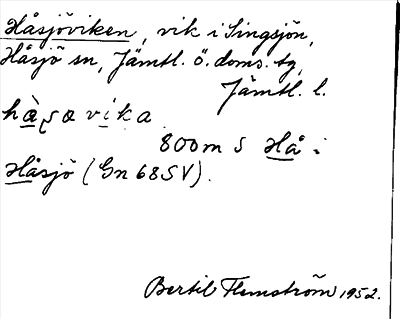 Håsjöviken, vik i Singsjön,
Håsjö sn, Jämtl. ö. doms. tg,
Jämtl. l.
hàʂavika
800 m S Hå i
Håsjö (Gn 68SV).
Bertil Flemström 1952.